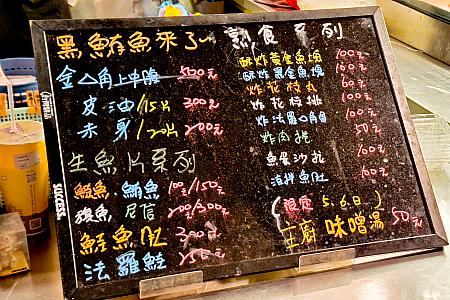 黑鮪魚來了~
金三角上中腹 500元
皮油/15片 300元
赤身/20片 200元
生魚片系列
鮭魚 鮪魚 100/150元
旗魚 尼信 200/300元
鮭魚肚 300元
法羅鮭 350元
熟食系列
酥炸黃金魚塊 100元
酥炸黑金魚塊 160元
炸花枝丸 60元
炸花枝排 100元
100元
炸肉捲 50元
魚蛋沙拉 100元
涼拌魚肚 100元
(限定 5.6.日)
主廚味噌湯 50元
SUCCESS